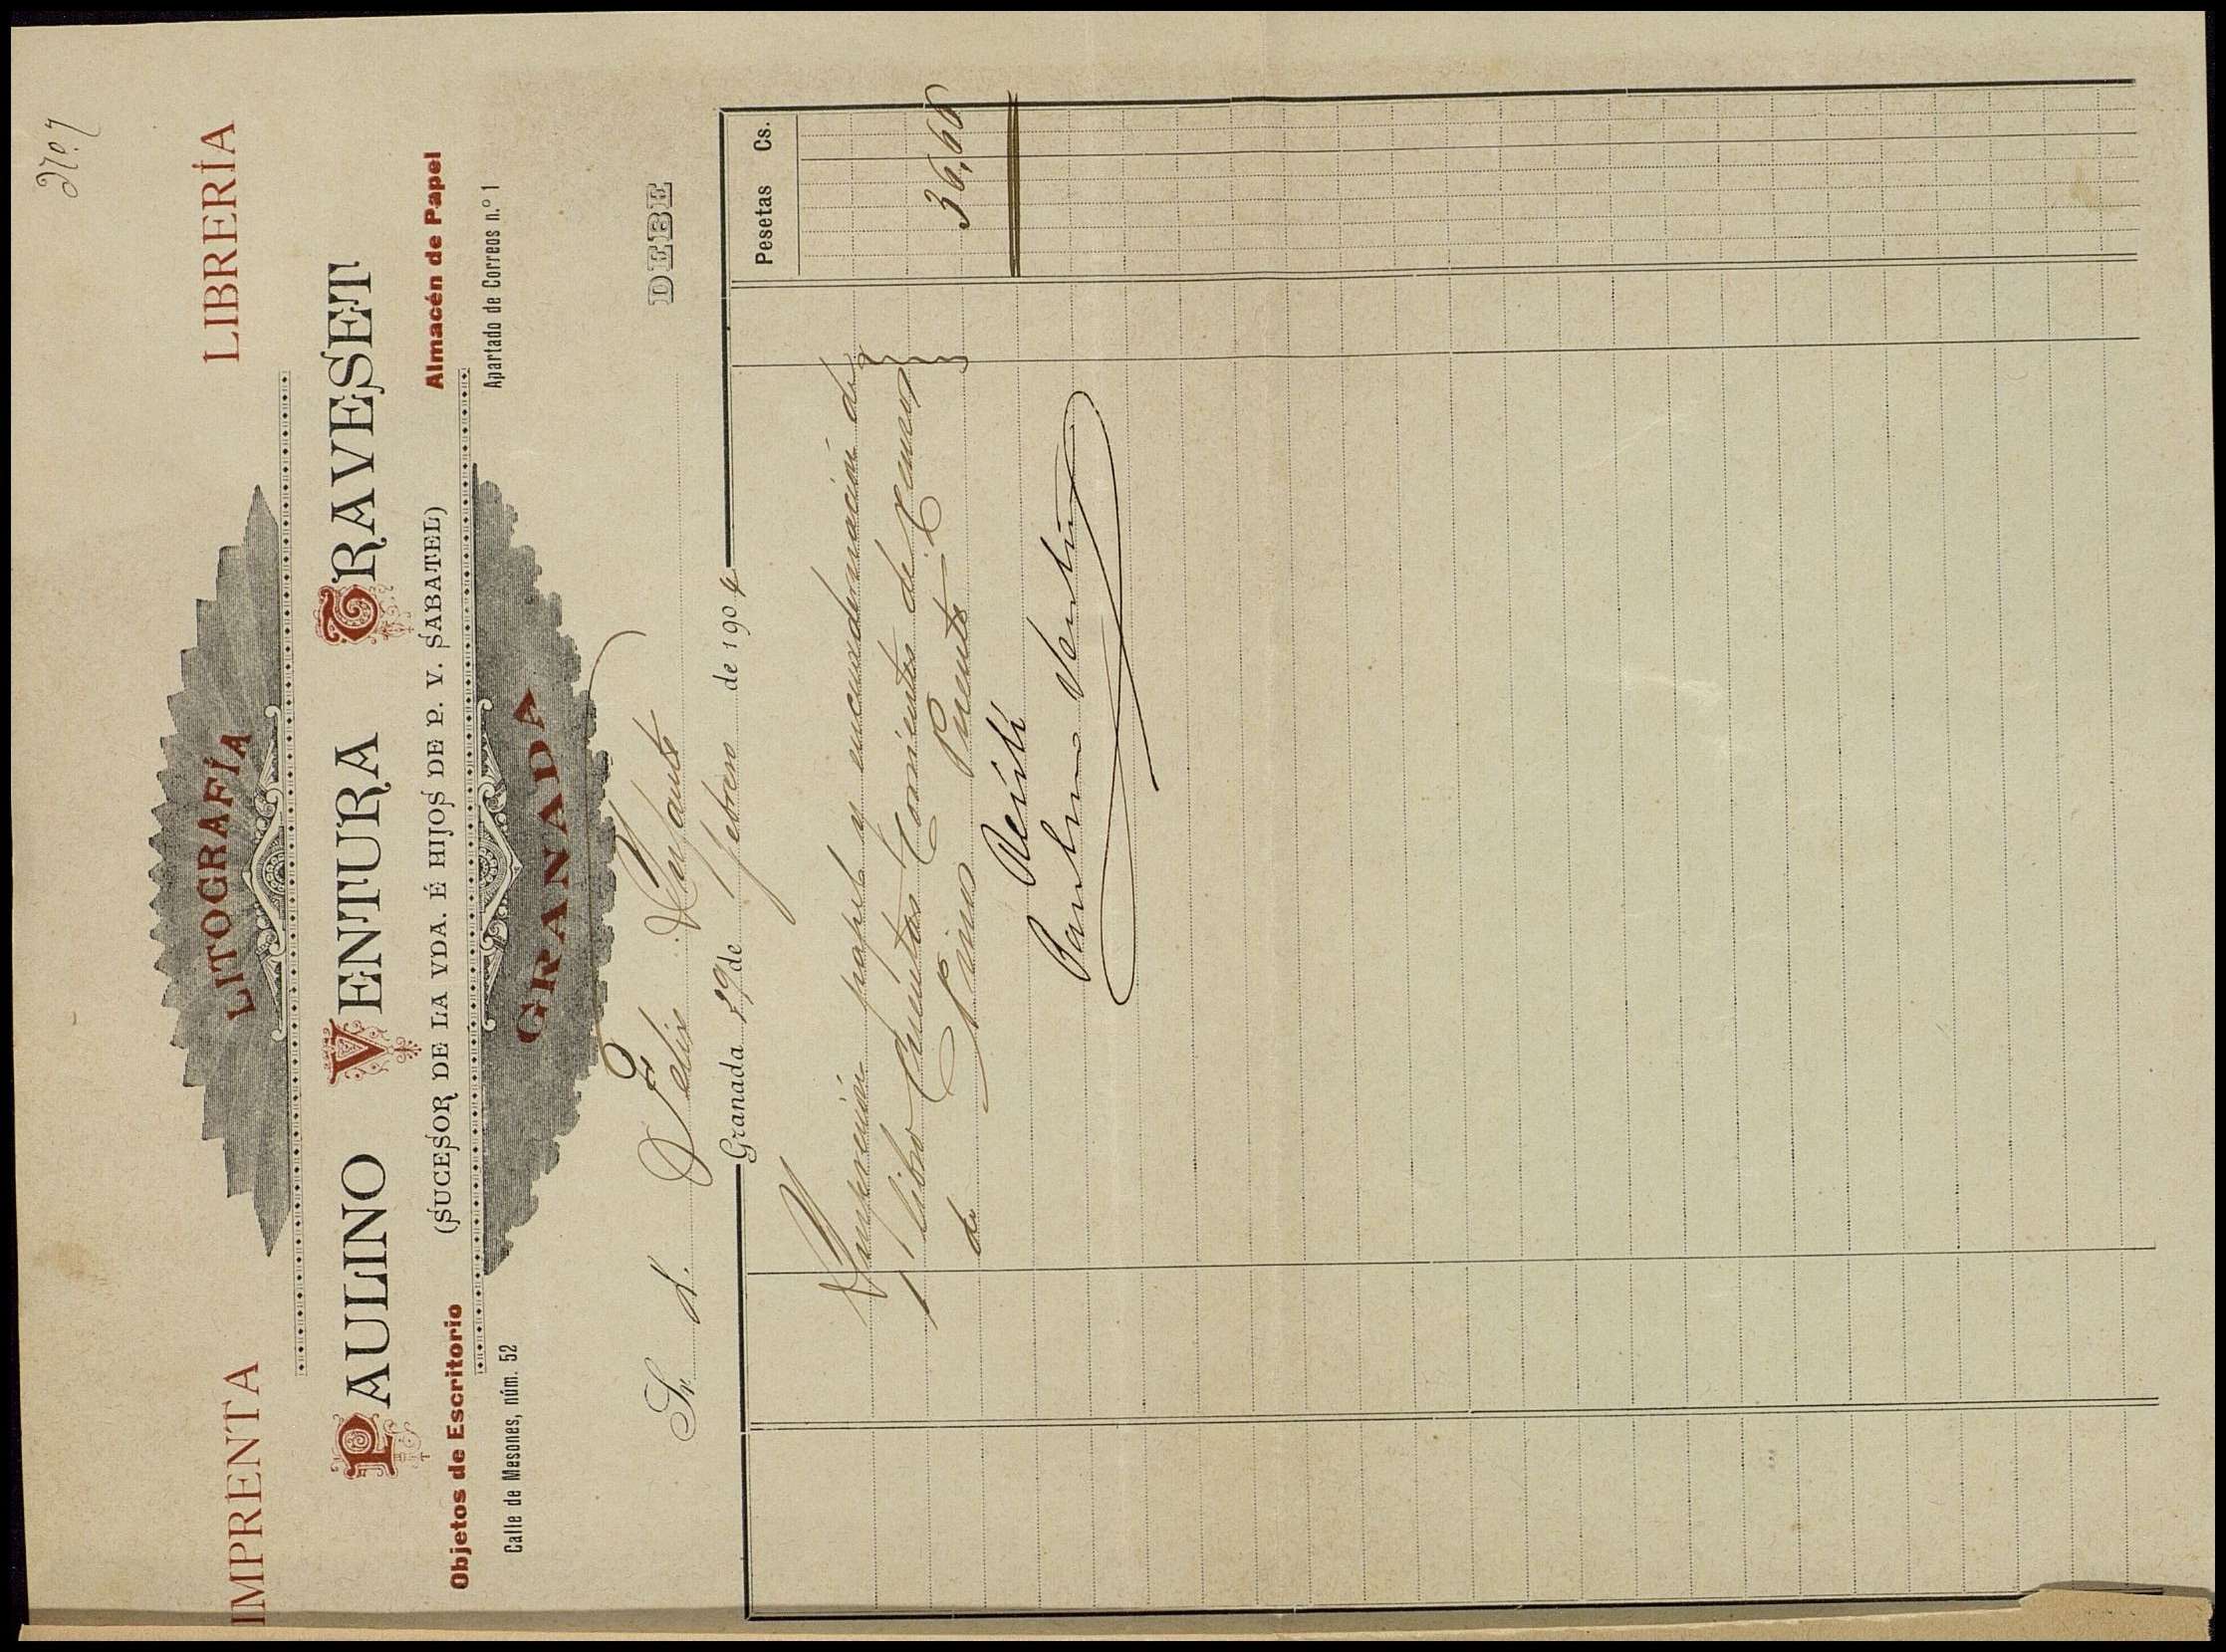 Nº 7
IMPRENTA LITOGRAFÍA LIBRERÍA
PAULINO VENTURA TRAVESET
(SUCESOR DE LA VDA. É HIJOS DE P. V. SABATEL)
Objetos de Escritorio Almacén de Papel
Calle de Mesones, núm. 52 GRANADA Apartado de Correos n.º 1
Sr. d. Felix Infante DEBE
Granada 29 de febrero de 1904
Pesetas Cs.
Impresión papel y encuadernacion de
1 libro Cuentas Corrientes de
de Pinos Puente 36,66
Recibí
Paulino Ventura